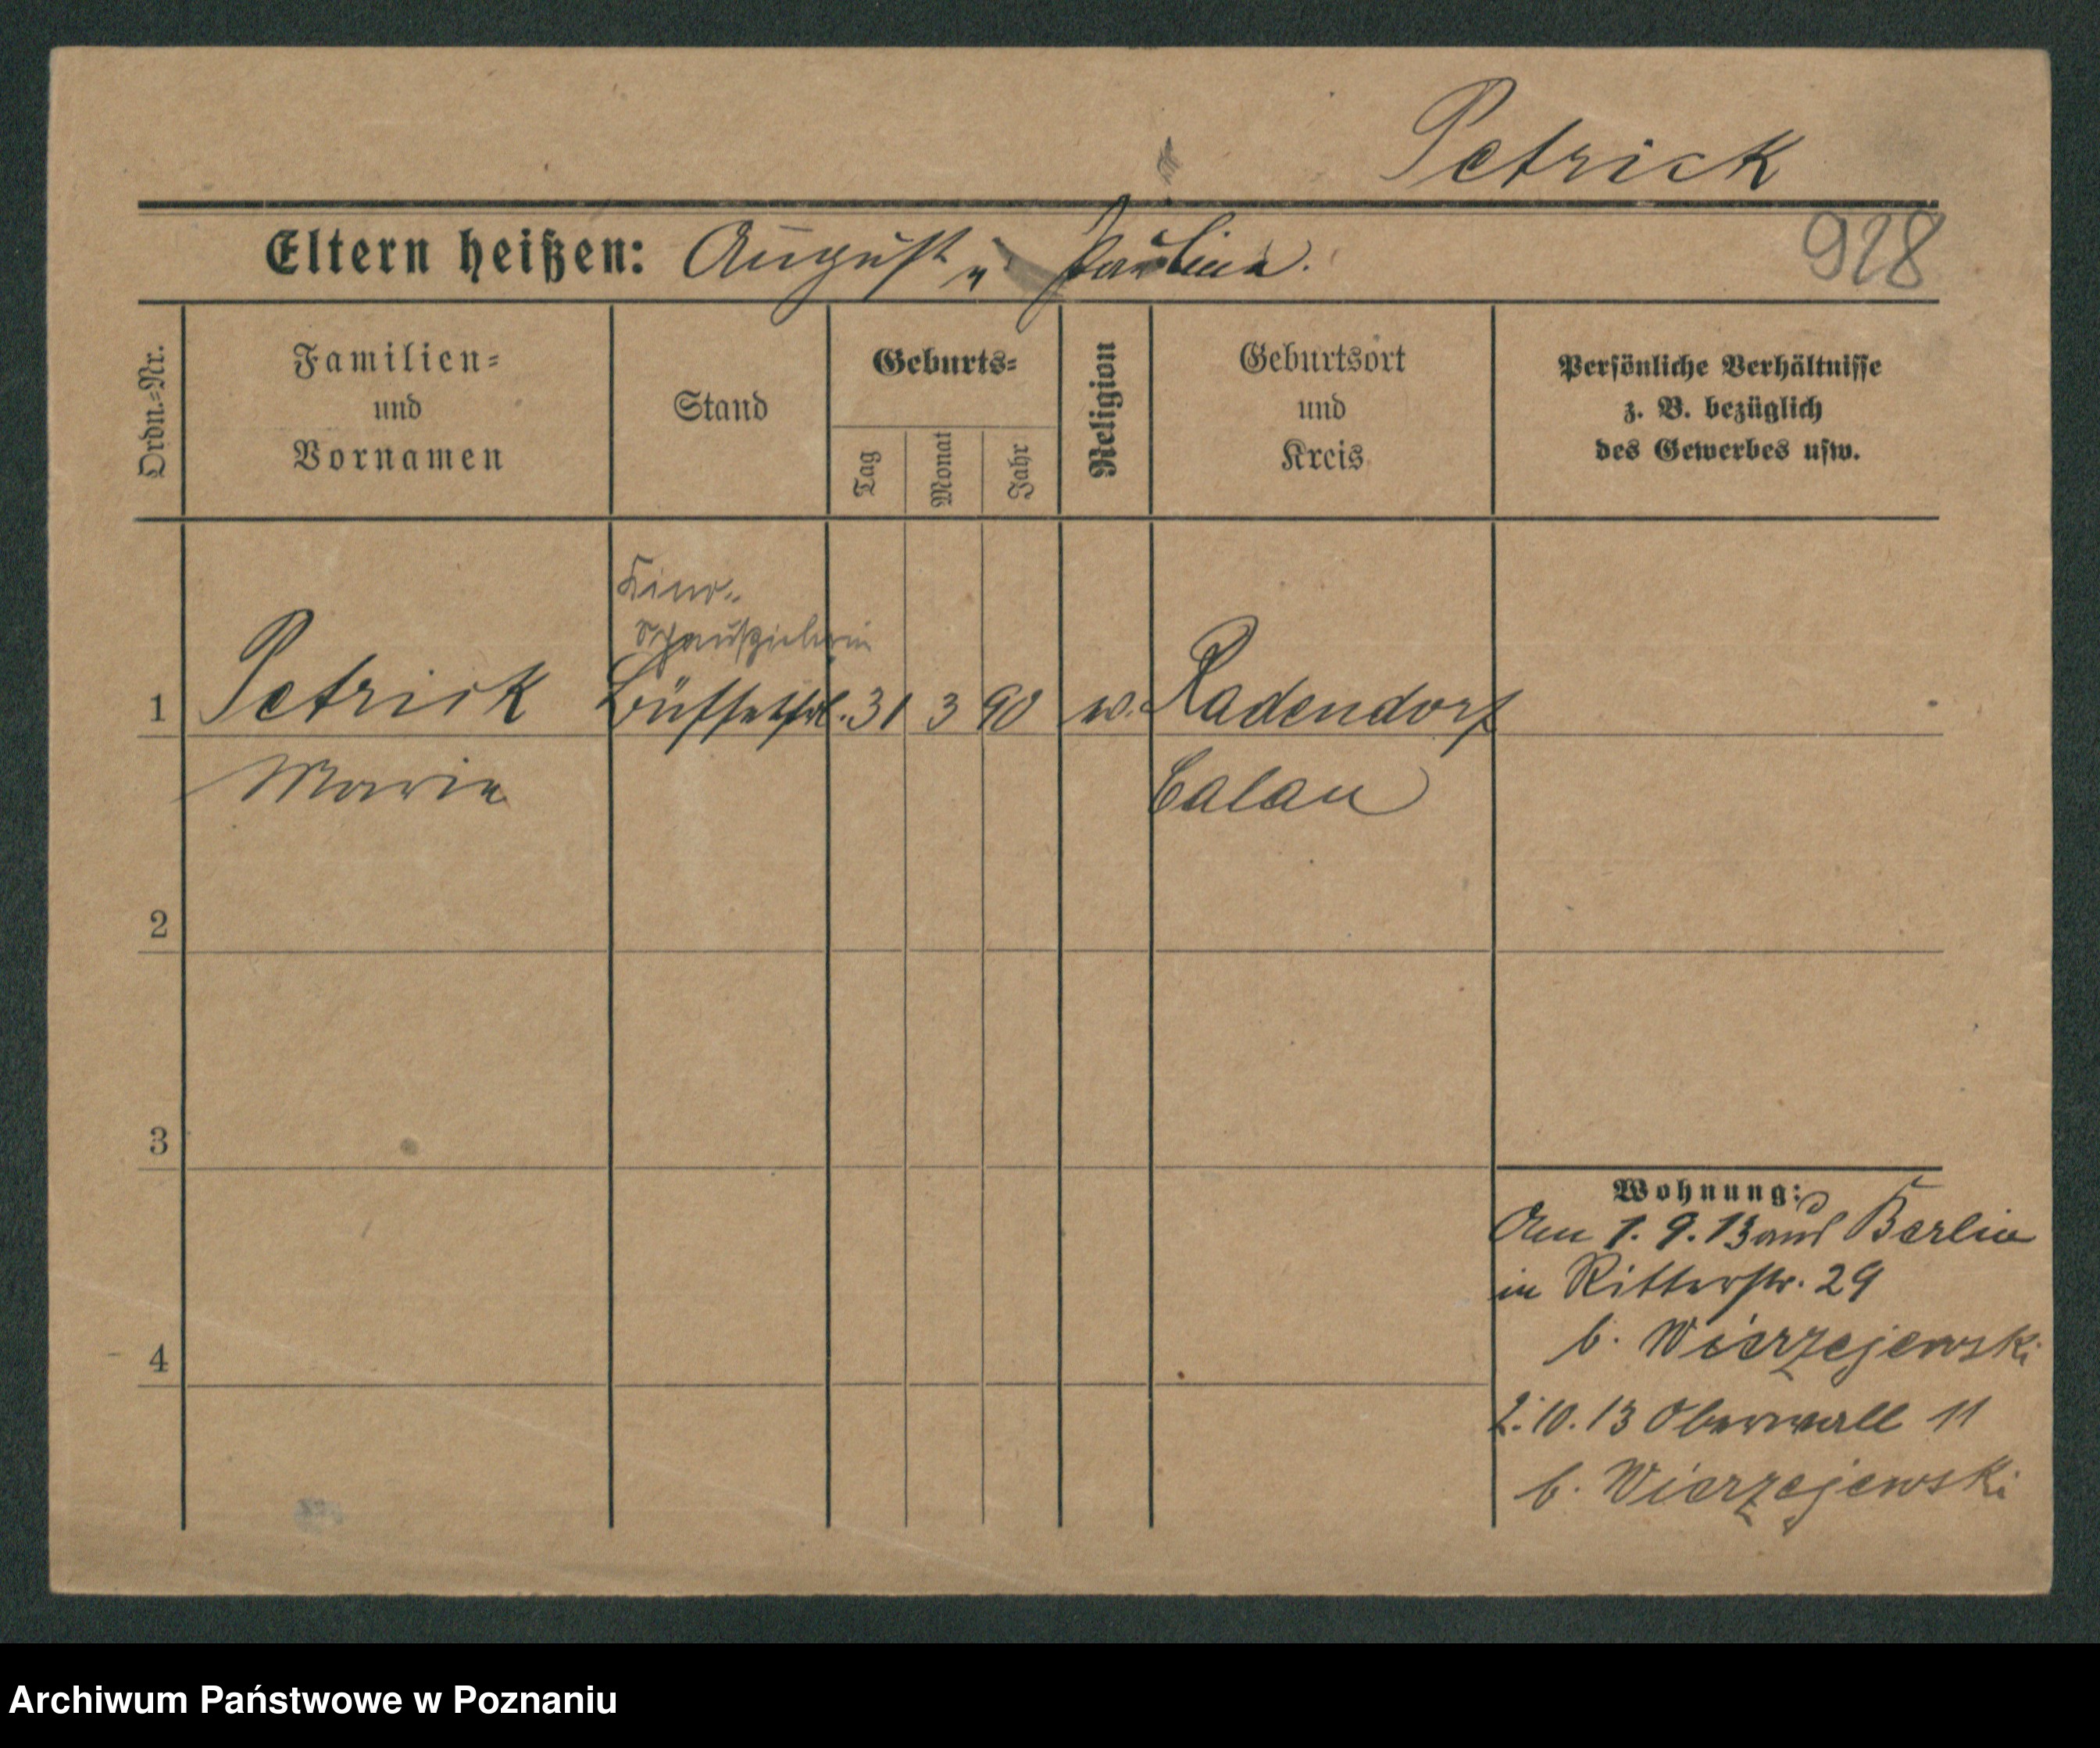 Petrick
Eltern heißen: August u Paulina.
928
Ordn.-Nr.
Familien-
und
Vornamen
Stand
Geburts-
Tag
Monat
Jahr
Religion
Geburtsort
und
Kreis
Persönliche Verhältnisse
z. B. bezüglich
des Gewerbes usw.
Kino-
schauspielerin
1 Petrick Büffetfrl. 31 3 90 Radendorf
Marie Calau
2
3
4
Wohnung:
Am 1. 9. 13 aus Berlin
in Ritterstr. 29
b. Wierzejewski
2. 10. 13 Oberwall 11
b. Wierzejewski
Archiwum Państwowe w Poznaniu